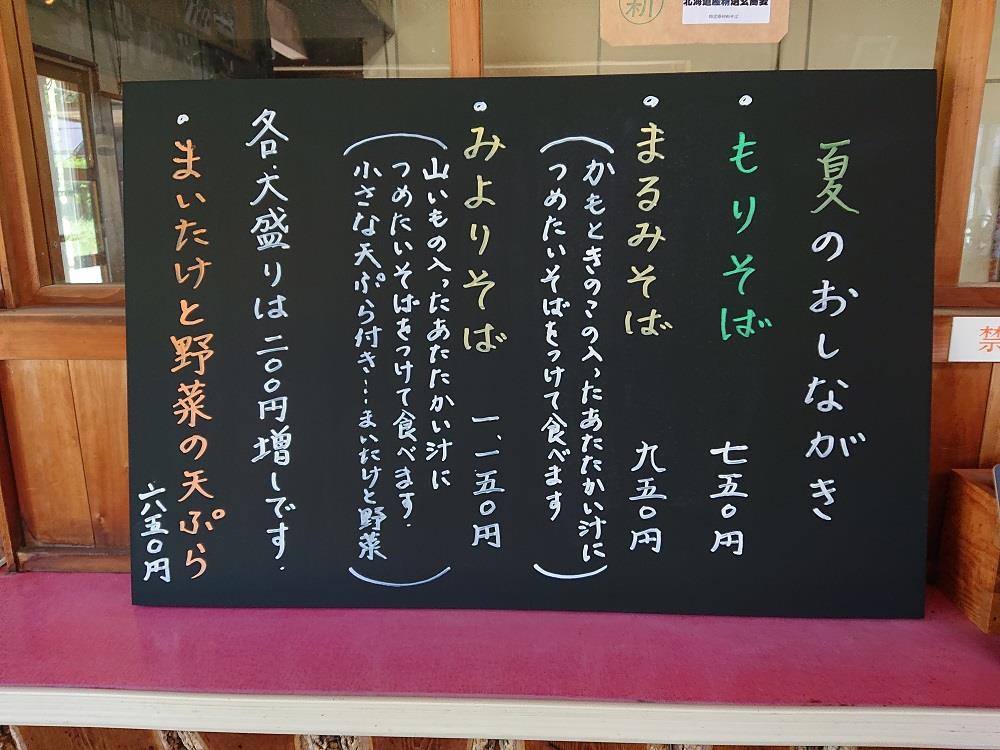 夏のおしながき
• もりそば 七五〇円
• まるみそば 九五〇円
(かもときのこの入ったあたたかい汁に
つめたいそばをつけて食べます)
• みよりそば 一、一五〇円
(山いもの入ったあたたかい汁に
つめたいそばをつけて食べます.
小さな天ぷら付き…まいたけと野菜)
各.大盛りは二〇〇円増しです.
• まいたけと野菜の天ぷら
六五〇円
北海道産精選玄蕎麦
禁